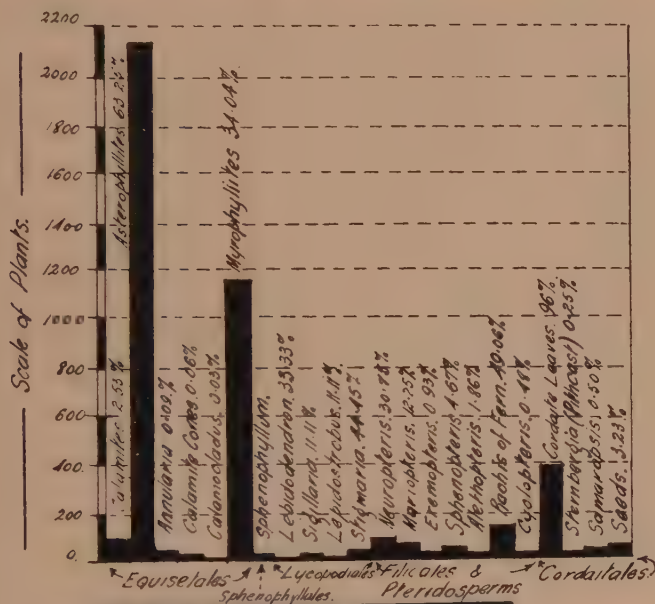 Scale of Plants.
2200
2000
1800
1600
1400
1200
1000
800
600
400.
200
0.
Calamites 2.53%
Asterophyllites. 63.25%
Annularia 0.09%
Calamite Cones 0.06%
Calamocladus. 0.03%
Myriophyllites 34.04%
Sphenophyllum.
Lebidodendron. 33.33%
Sigillaria. 11.11%
Lepidostrobus. 11.11%
Stigmaria. 44.45%
Neuropteris. 30.75%
Mariopteris. 12.75%
Eremopteris. 0.93%
Sphenopteris. 4.67%
Alethopteris. 1.86%
Rachis of Fern. 49.06%
Cyclopteris. 0.46%
Cordaite Leaves. 96%.
Sternbergia (Pithcast) 0.25%
Samaropsis). 0.50%
Seeds. 3.23%
Equisetales.
Sphenophyllales.
Lycopodiales
Filicales &
Pteridosperms
Cordaitales.